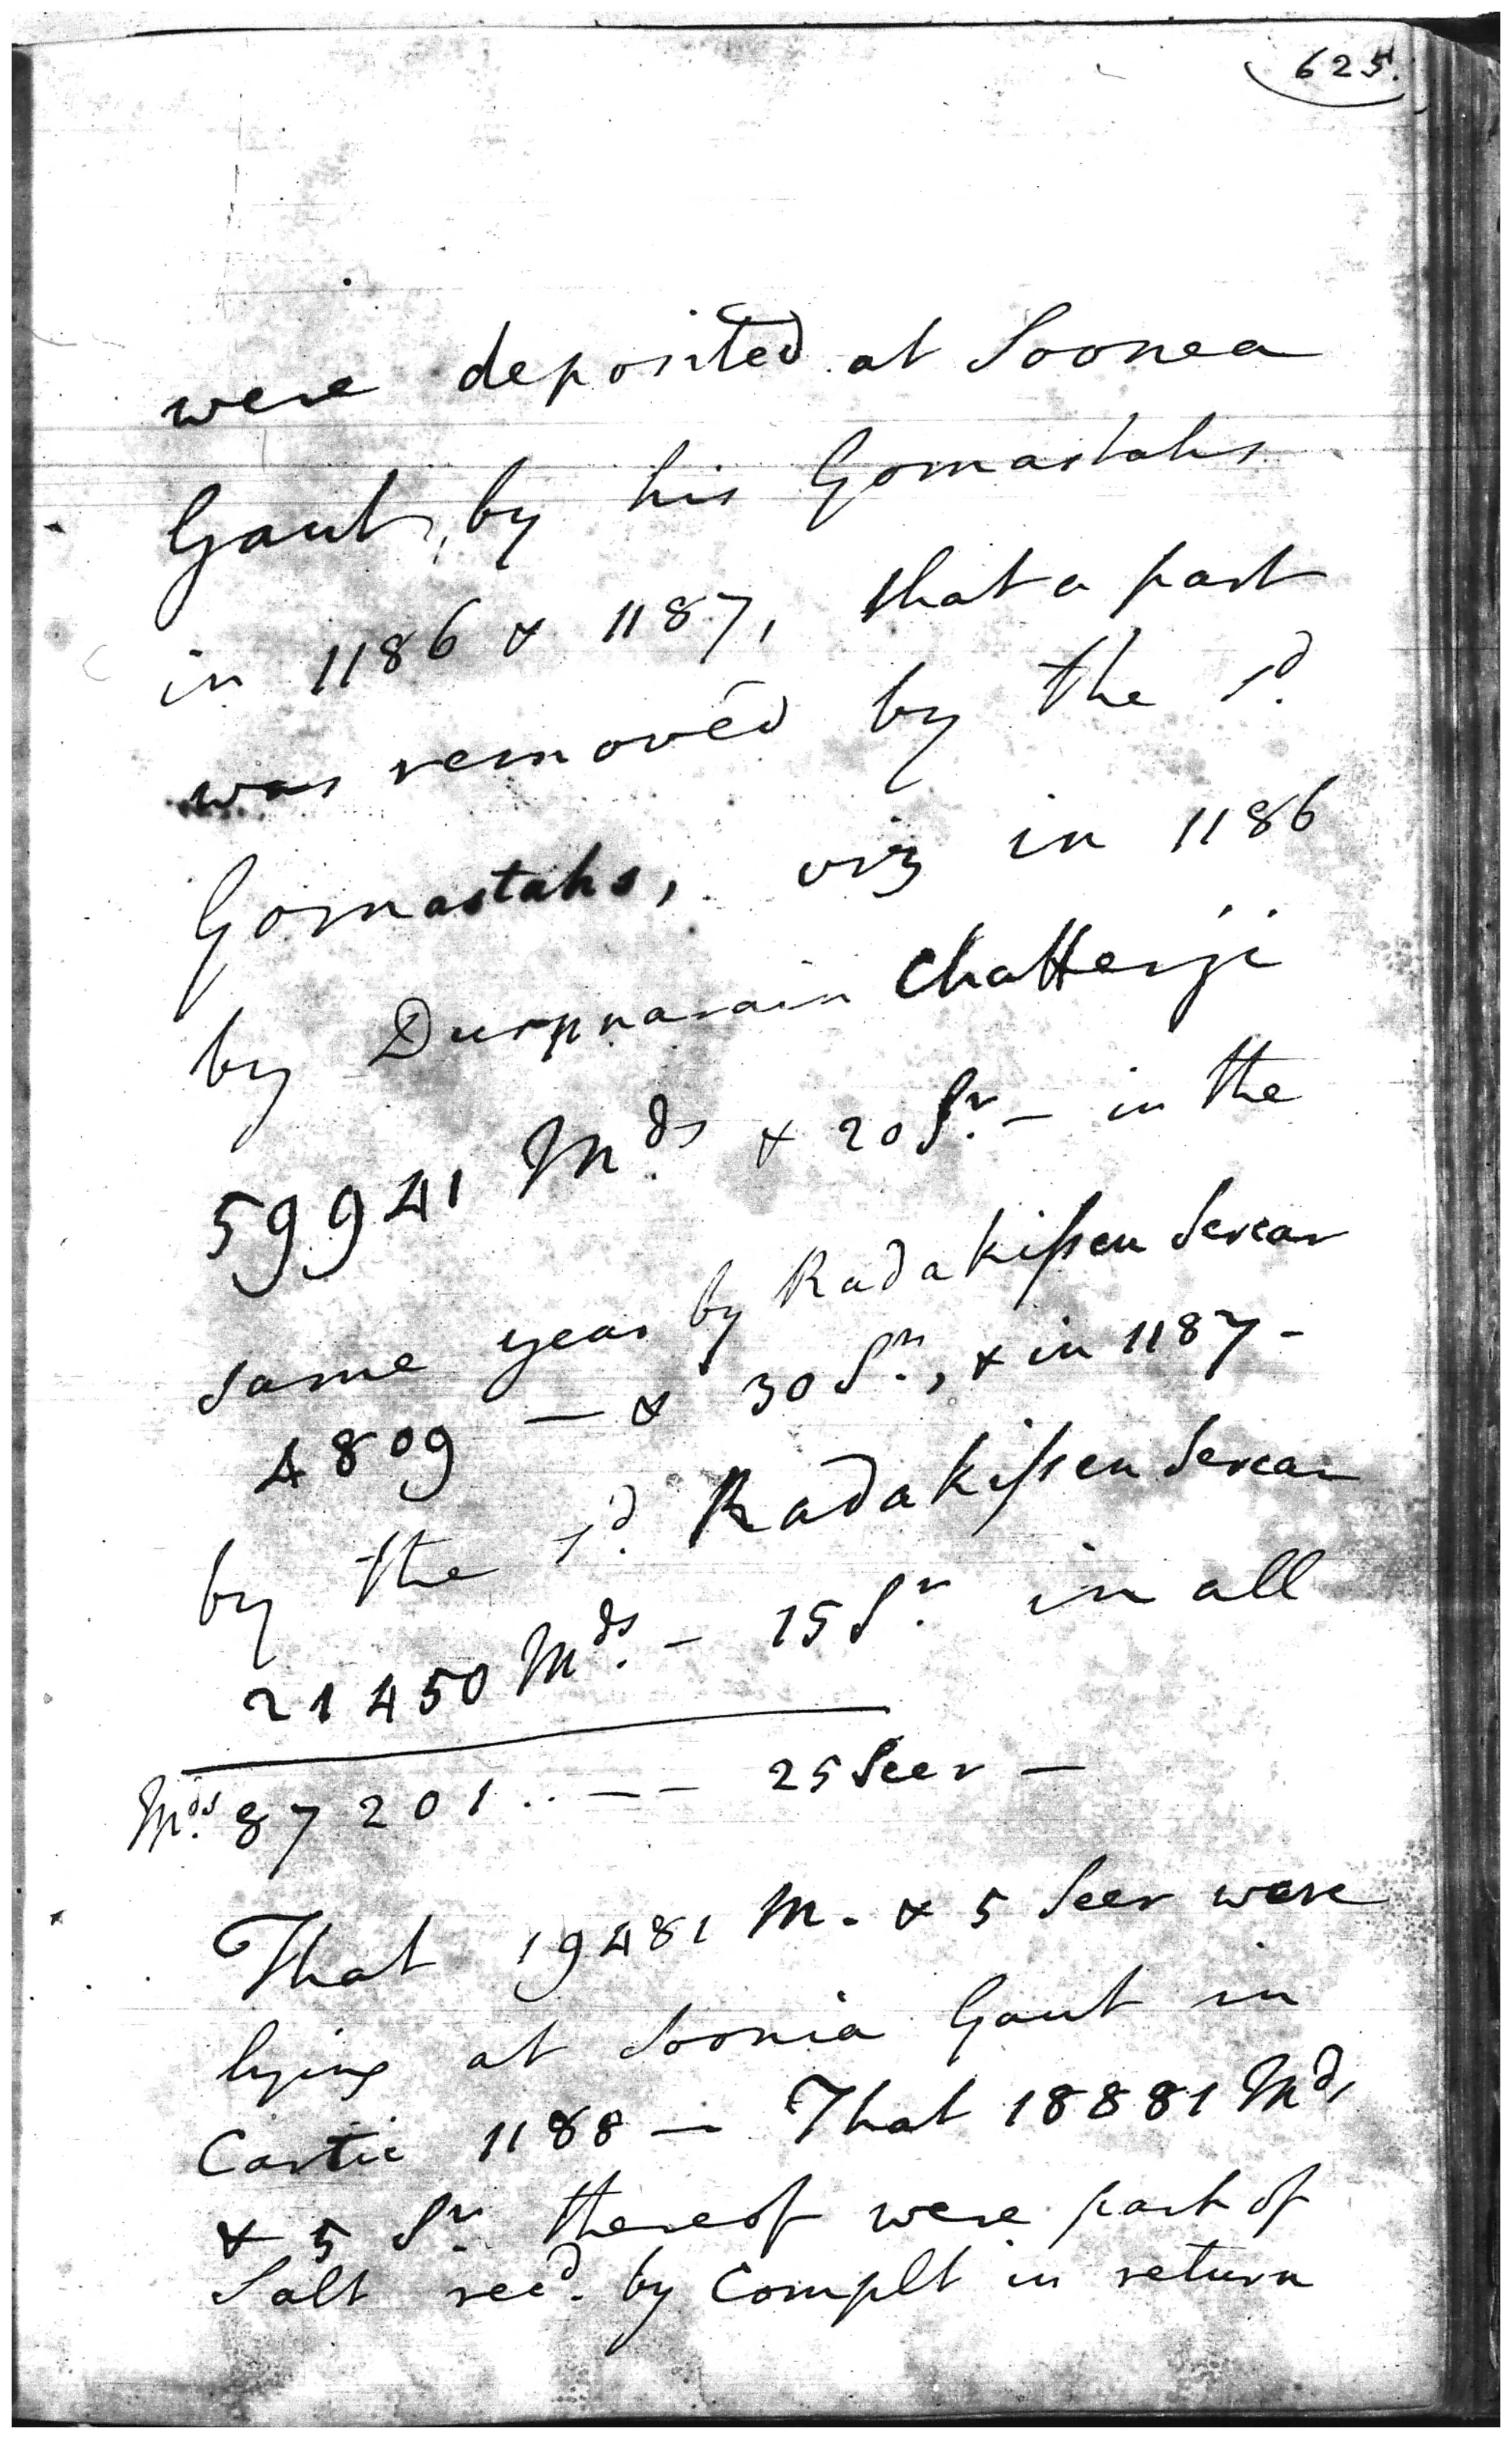 625.
were deposited at Soonea
Gaut, by his Gomastahs
in 1186 & 1187, that a part
was removed by the sd.
Gomastahs, viz in 1186
by Durpnarain Chatterji
59941 Mds. & 20 Sr. — in the
same year by Radakissen Sercar
4809 — & 30 Sr., & in 1187 -
by the sd. Radakissen Sercar
21450 Mds. — 15 Sr. in all
Mds. 87201 .. — — 25 Seer —
That 19481 M. & 5 Seer were
lying at Soonia Gaut in
Cartic 1188 — That 18881 Mds
& 5 Sr. thereof were part of
Salt recd. by Complt in return